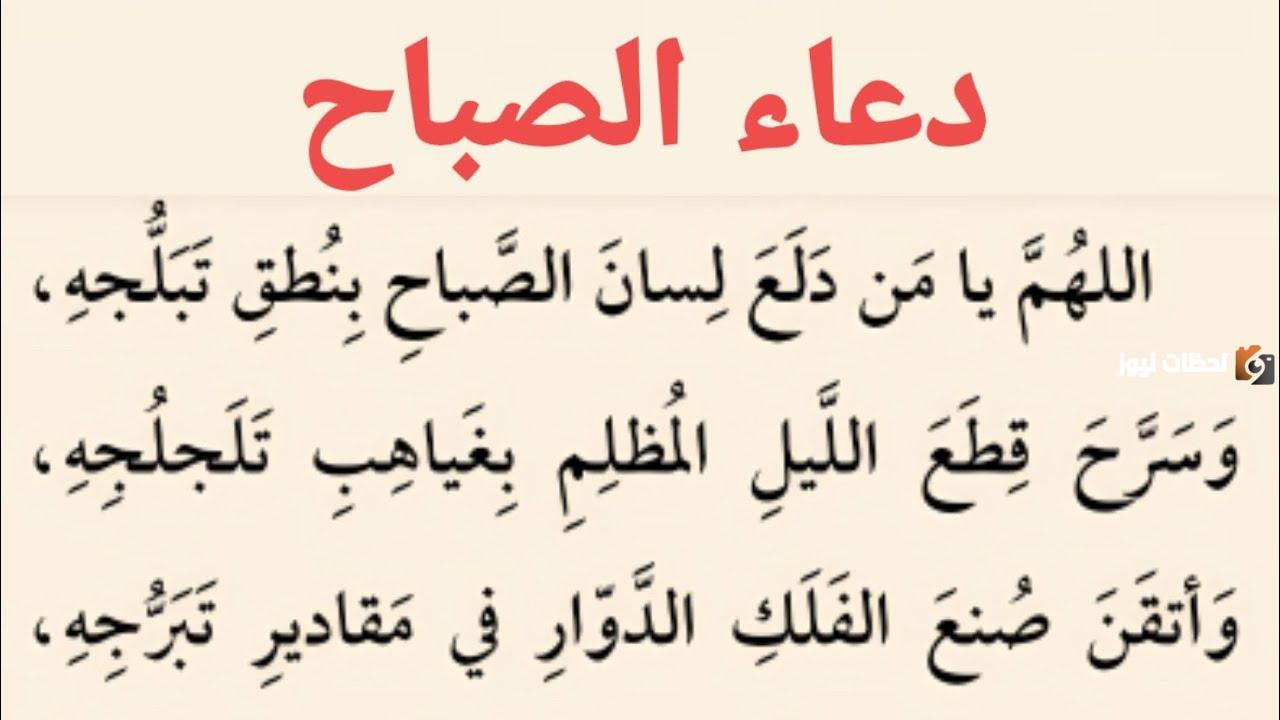 دعاء الصباح
اللهُمَّ يا مَن دَلَعَ لِسانَ الصَّباحِ بِنُطقِ تَبَلُّجِهِ،
لحظات نيوز
وَسَرَّحَ قِطَعَ اللَّيلِ المُظلِمِ بِغَياهِبِ تَلَجلُجِهِ،
وَأتقَنَ صُنعَ الفَلَكِ الدَّوّارِ في مَقاديرِ تَبَرُّجِهِ،